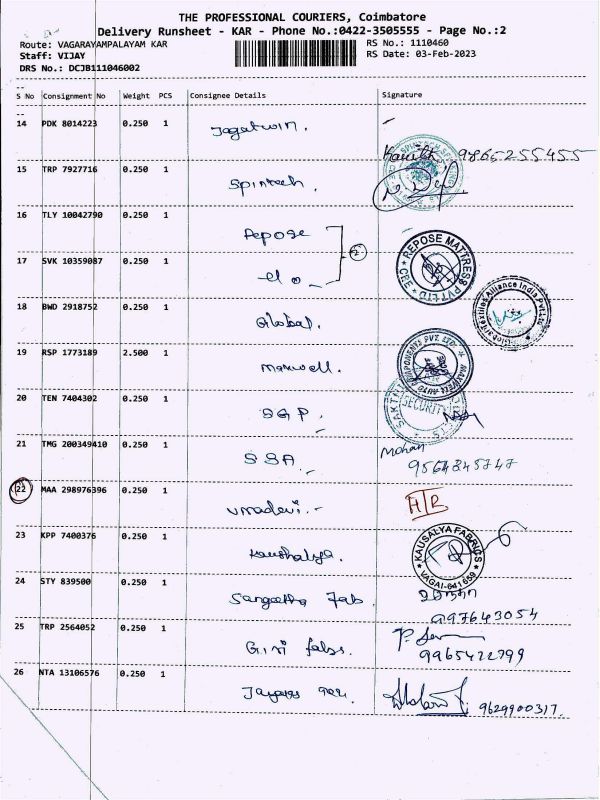 THE PROFESSIONAL COURIERS, Coimbatore
Delivery Runsheet - KAR - Phone No.:0422-3505555 - Page No.:2
Route: VAGARAYAMPALAYAM KAR
RS No.: 1110460
Staff: VIJAY
RS Date: 03-Feb-2023
DRS No.: DCJB111046002
S No Consignment No Weight PCS Consignee Details Signature
14 PDK 8014223 0.250 1 Jagatwin.
9865255455
15 TRP 7927716 0.250 1 Spintech.
16 TLY 10042790 0.250 1 Repose
2
REPOSE MATTRESS PVT LTD * CBE *
17 SVK 10359087 0.250 1
Global Textiles Alliance India Pvt.Ltd
18 BWD 2918752 0.250 1 Global.
19 RSP 1773189 2.500 1 Maxwell.
20 TEN 7404302 0.250 1 SGP.
SECURITY
21 TMG 200349410 0.250 1 SSA.
Mohan
9564845747
22 MAA 298976396 0.250 1 Umadevi.-
23 KPP 7400376 0.250 1 Kaushalya.
* KAUSALYA FABRICS * VAGAI-641659
24 STY 839500 0.250 1 Sangeetha Fab.
997643054
25 TRP 2564052 0.250 1 Giri fabs.
9965422799
26 NTA 13106576 0.250 1
9629900317.